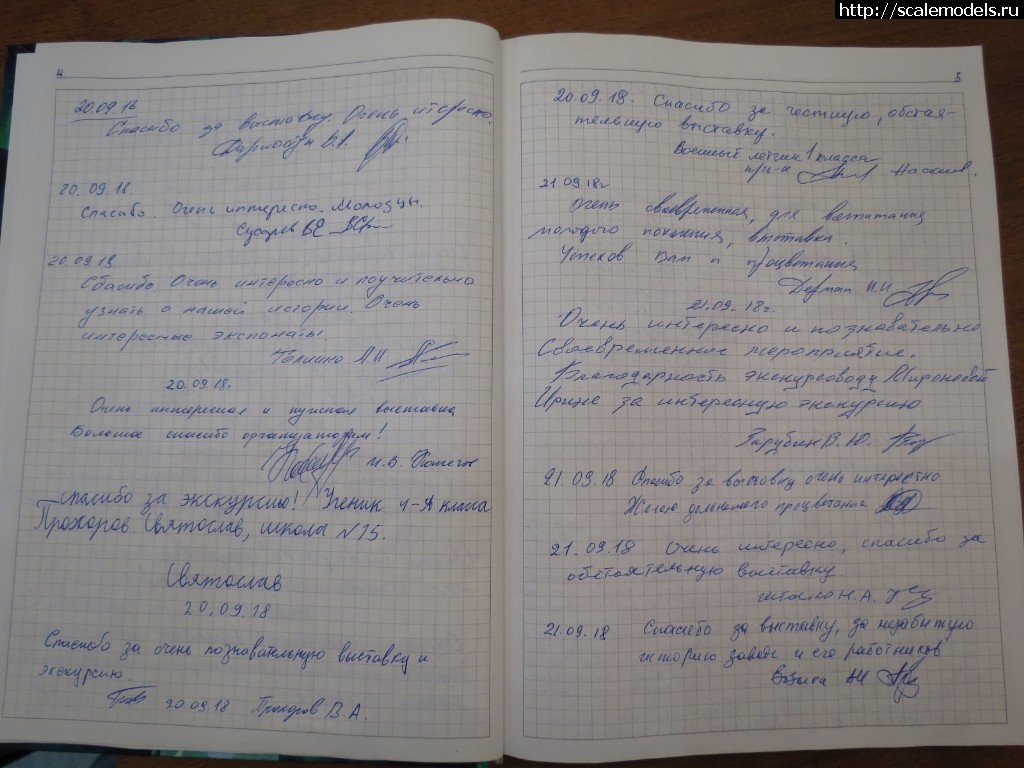 http://scalemodels.ru
4
20.09.18
Спасибо за выставку. Очень интересно.
20.09.18
Спасибо. Очень интересно. Молодцы.
Сударев ВЕ
20.09.18
Сбасибо Очень интересно и поучительно
узнать о нашей истории. Очень
интересные экспонаты.
20.09.18г
Очень интересная и нужная выставка
Большое спасибо организаторам!
И.В.
Спасибо за экскурсию! Ученик 4-А класса
Прохоров Святослав, школа №15.
Святослав
20.09.18
Спасибо за очень познавательную выставку и
экскурсию.
20.09.18 Прохоров В.А.
5
20.09.18. Спасибо за честную, обстоя-
тельную выставку.
Военный летчик 1 класса
п/п-к
21.09.18г
Очень своевременная, для воспитания
молодого поколения, выставка.
Успехов Вам и процветания
Дерман И.И
21.09.18г.
Очень интересно и познавательно
Своевременное мероприятие.
Благодарность экскурсоводу Мироновой
Ирине за интересную экскурсию
Зарубин В.Ю.
21.09.18 Спасибо за выставку очень интерестно
Желаю дальнейшего процветания
21.09.18 Очень интересно, спасибо за
обстоятельную выставку.
Н.А.
21.09.18 Спасибо за выставку, за незабытую
историю завода и его работников
АИ